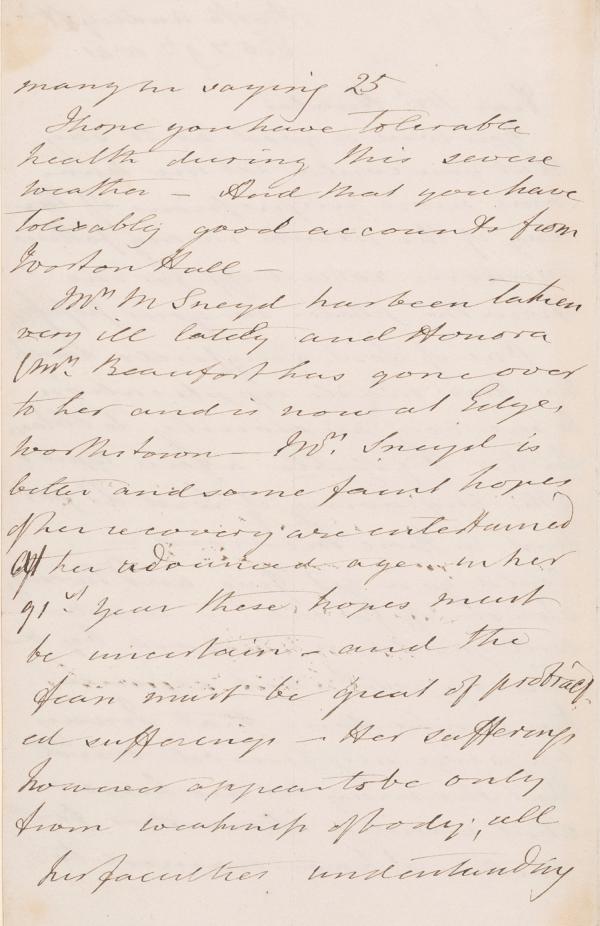 many in saying 25
I hope you have tolerable
health during this severe
weather – And that you have
tolerably good accounts from
Moorton Hall –
Mrs. M Sneyd has been taken
very ill lately and Honora
(Mrs. Beaufort has gone over
to her and is now at Edge,
worthstown – Mrs. Sneyd is
better and some faint hopes
of her recovery are entertained
At her advanced age in her
91st year these hopes must
be uncertain – and the
fear must be great of protract-
ed sufferings – Her sufferings
however appear to be only
from weakness of body; all
her faculties understanding